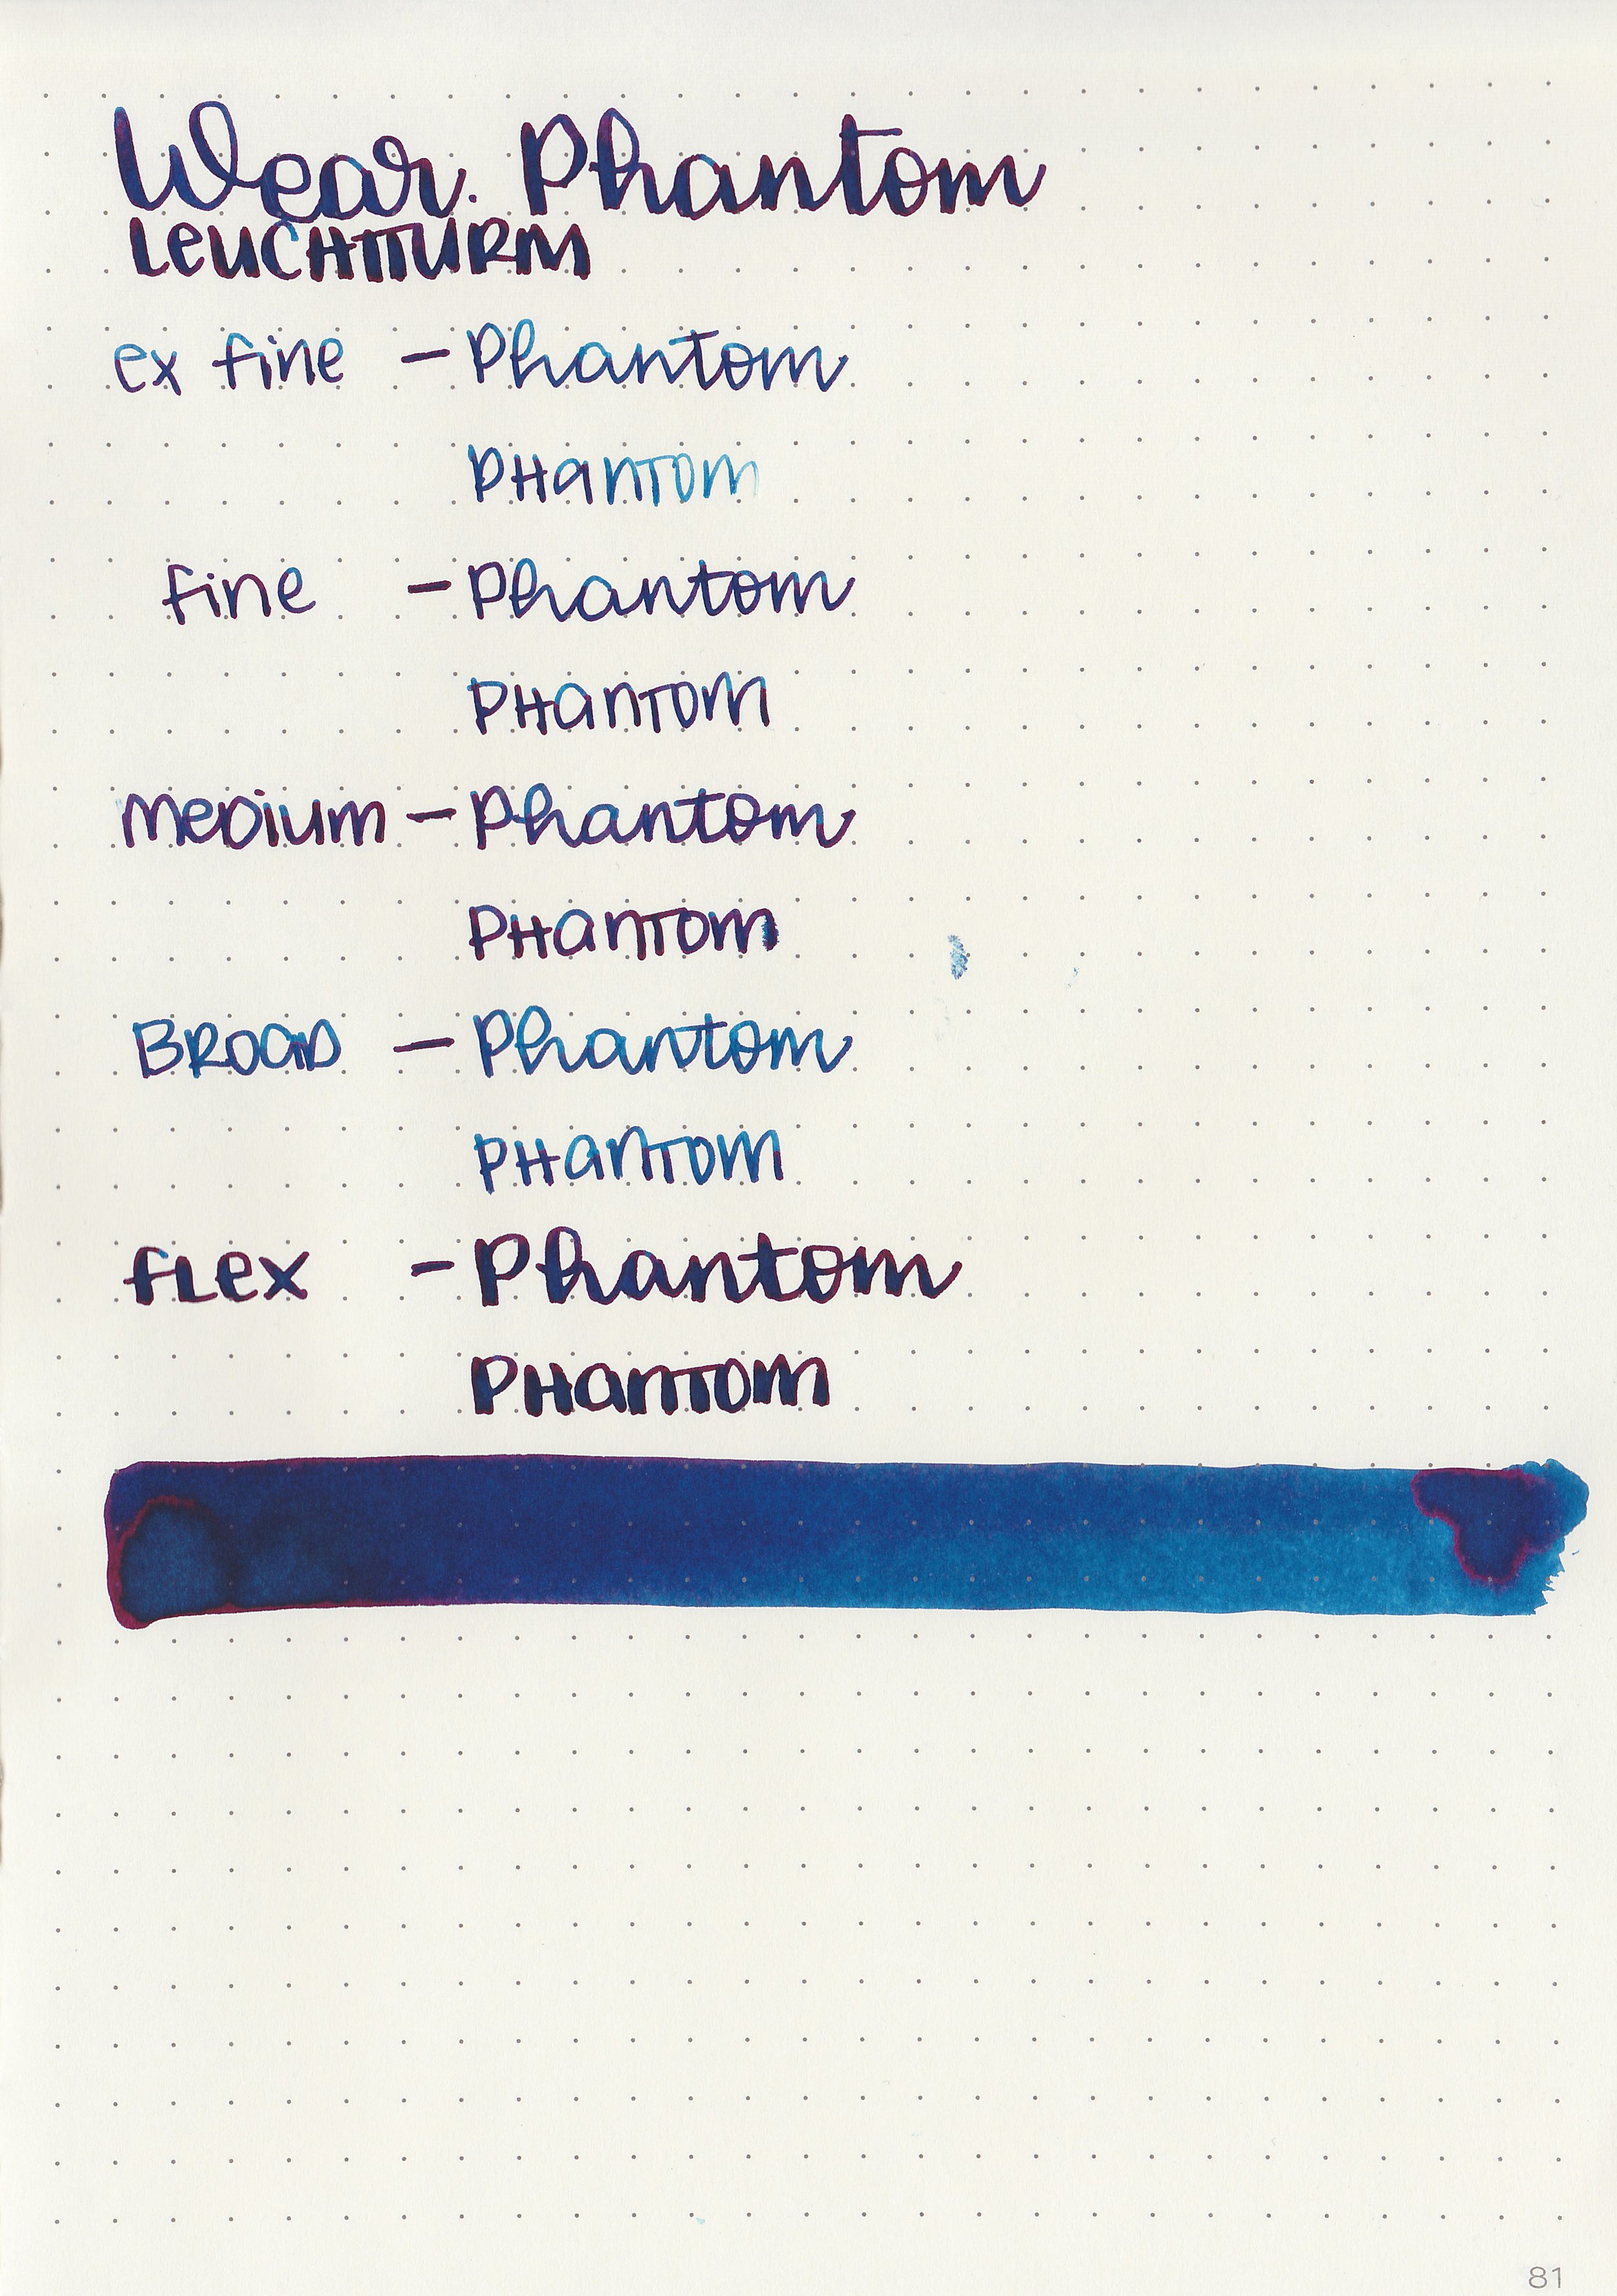 Wear. Phantom
LEUCHTTURM
ex fine - Phantom
PHanTOm
fine - Phantom
PHanTOm
meDium - Phantom
PHanTOm
BROaD - Phantom
PHanTOm
fLex - Phantom
PHanTOm
81